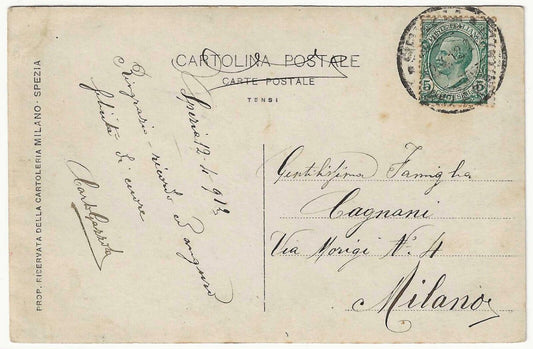 CARTOLINA POSTALE
CARTE POSTALE
TENSI
PROP. RISERVATA DELLA CARTOLERIA MILANO - SPEZIA
Spezia 12-4-912
Ringrazio - ricordo ed auguro
felicità di cuore
Carlo
5 5
Gentilissima Famiglia
Cagnani
Via Morigi N. 4
Milano